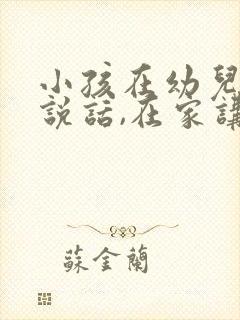 小孩在幼兒
說話,在家講
蘇金蘭